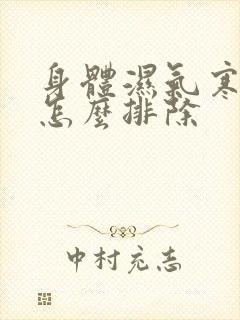 身體濕氣寒
怎麼排除
中村充志